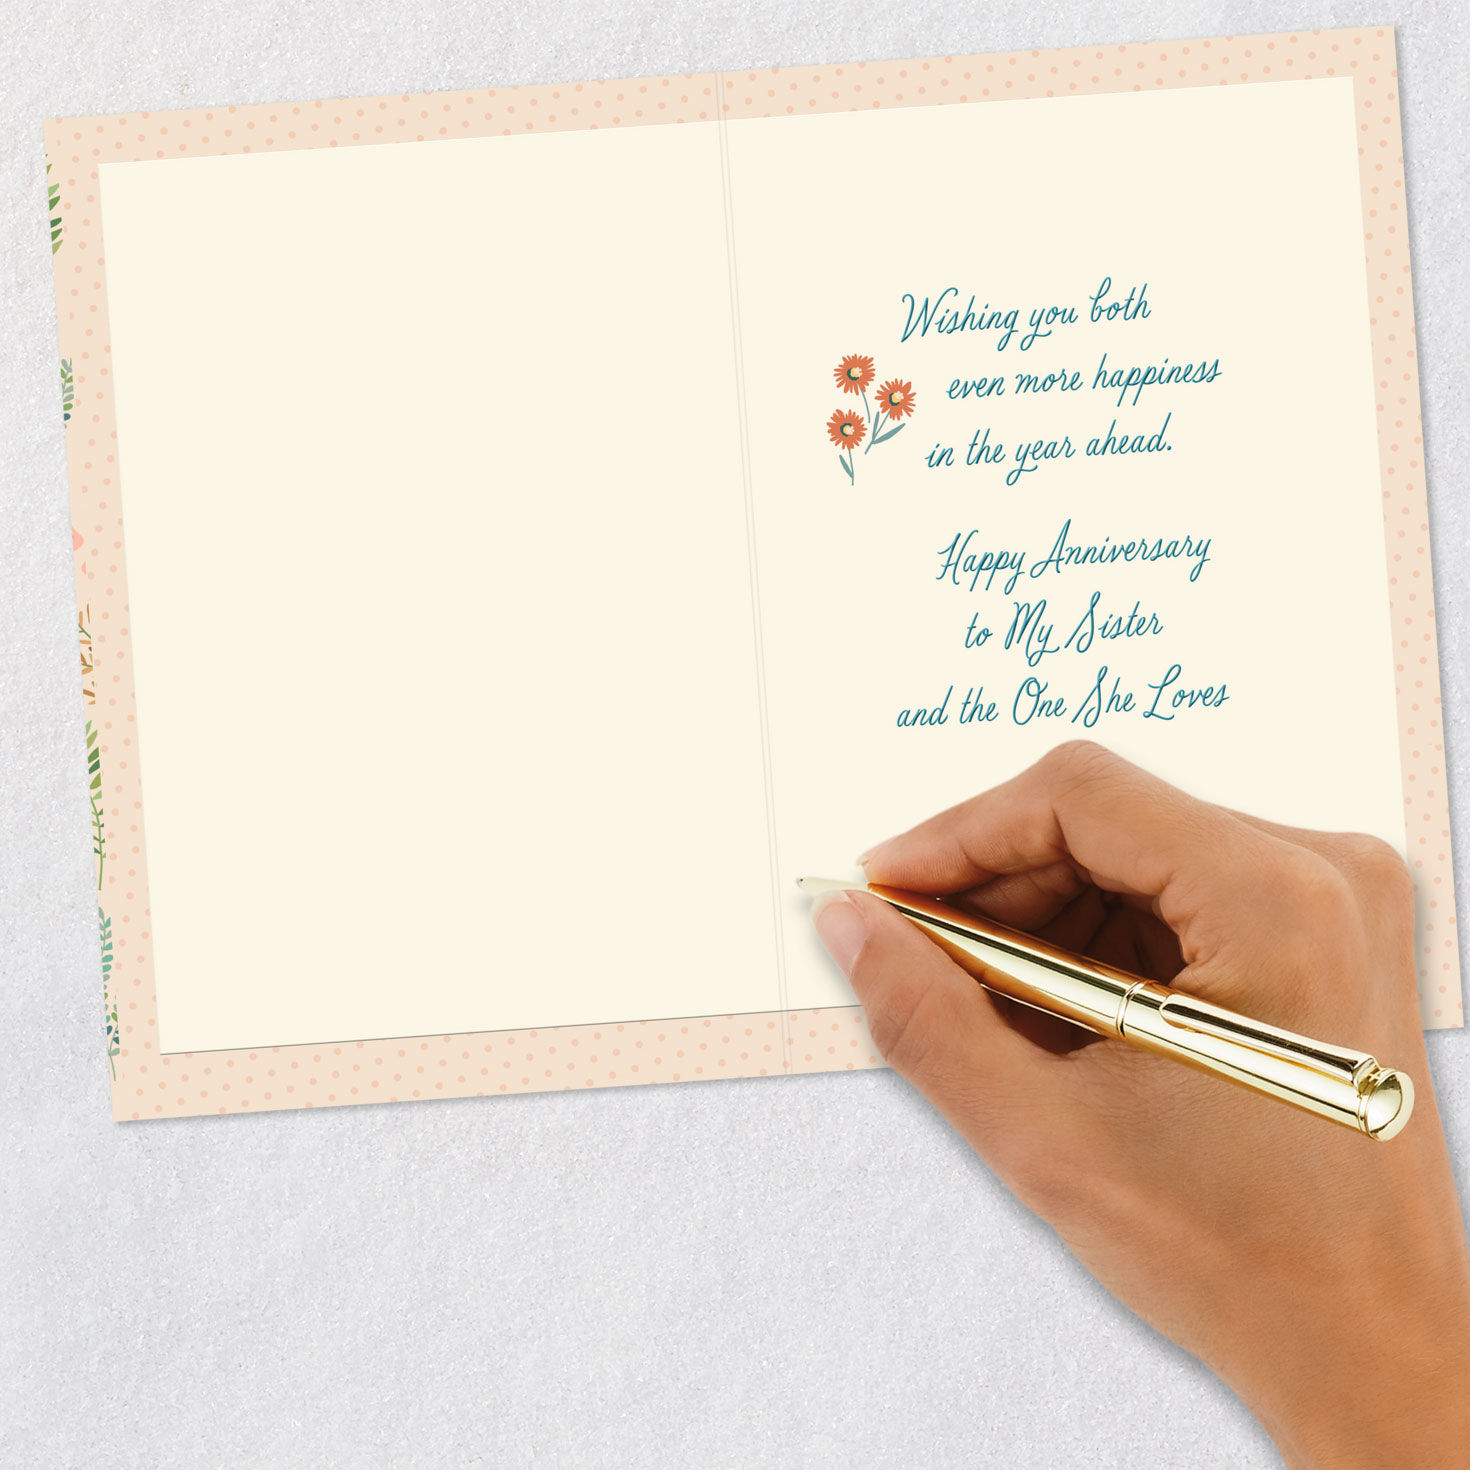 Wishing you both
even more happiness
in the year ahead.
Happy Anniversary
to My Sister
and the One She Loves